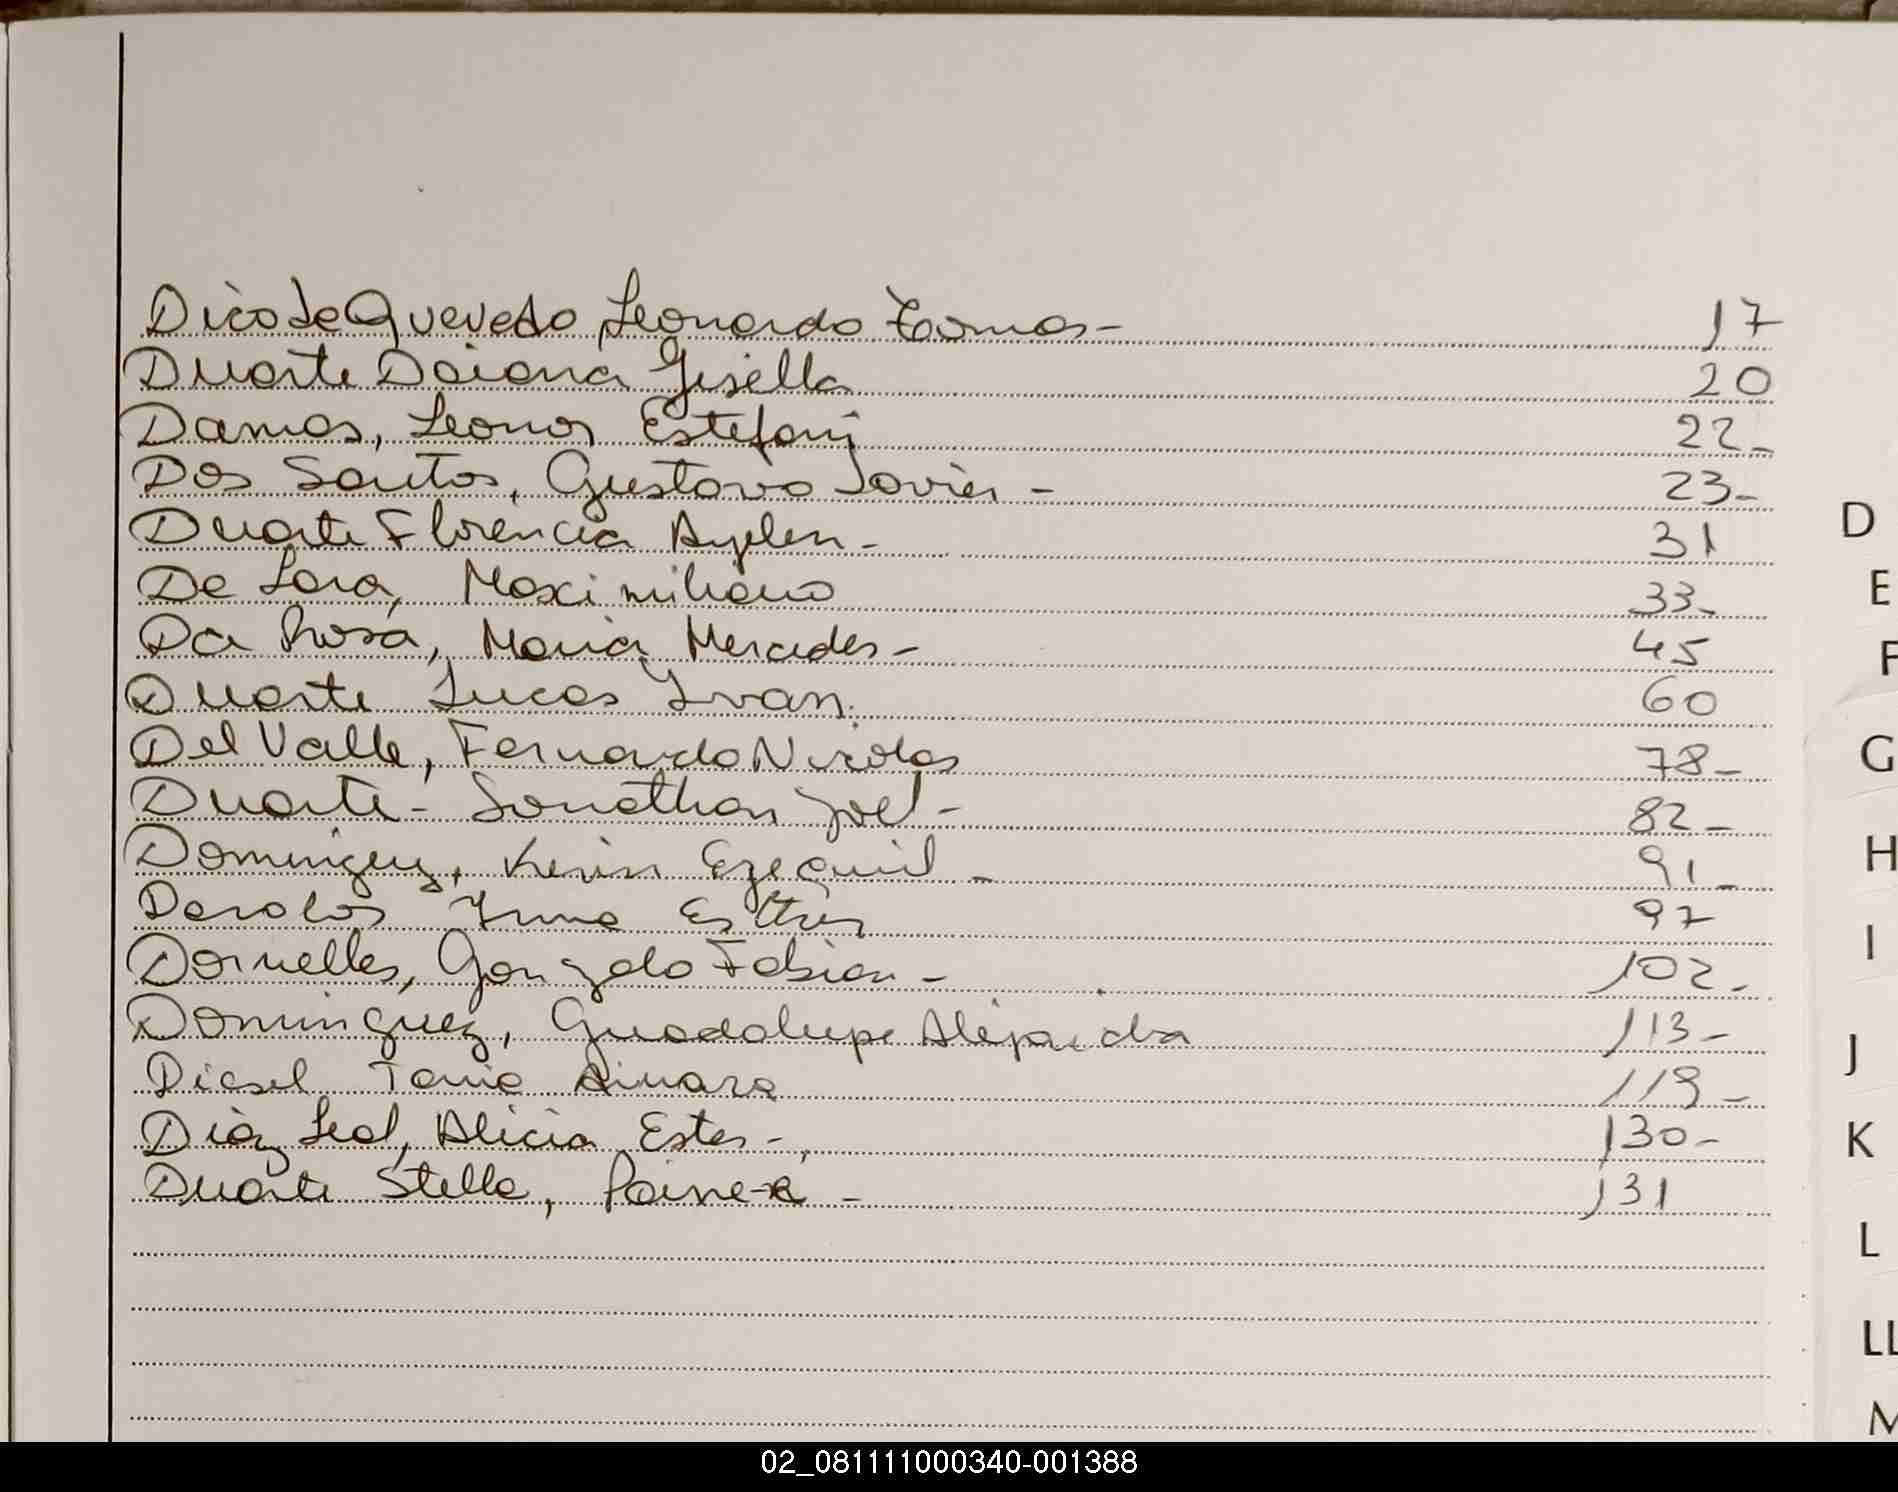 Dico de Quevedo Leonardo Tomas- 17
Duarte Daiana Gisella 20
Damas, Leonor Estefani 22-
Dos Santos, Gustavo Javier - 23-
Duarte Florencia Ayelen - 31
De Lara, Maximiliano 33-
Da Rosa, Maria Mercedes - 45
Duarte Lucas Ivan. 60
Del Valle, Fernando Nicolas 78-
Duarte - Jonathan Joel - 82-
Dominguez, Kevin Ezequiel - 91-
Irma Esther 97
Dornelles, Gonzalo Fabian - 102-
Dominguez, Guadalupe Alejandra 113-
Diesel Tania Ainara 119-
Diaz Leal, Alicia Ester - 130-
Duarte Stella, - 131
D
E
F
G
H
I
J
K
L
LL
M
02_081111000340-001388